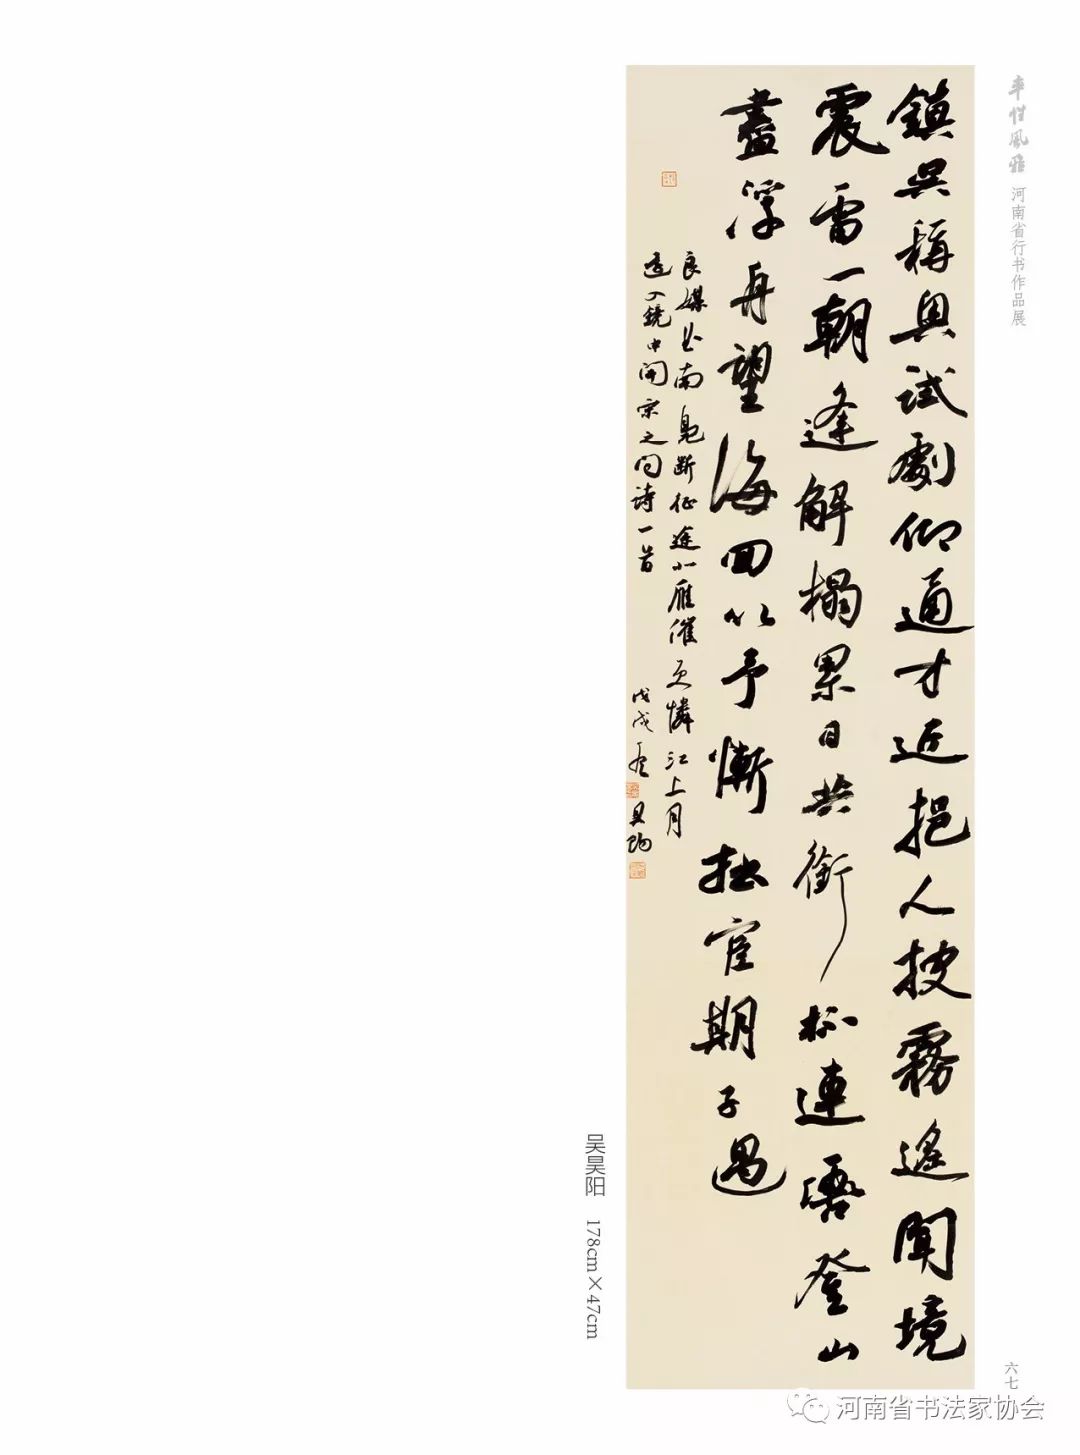 率性風雅 河南省行书作品展
鎮吳稱奥試劇仰通才近挹人披霧遥聞境
震雷一朝逢解榻累日共銜杯連轡登山
盡浮舟望海回以予慚拙宦期子遇
良媒南鳧断征途北雁催更憐江上月
還入鏡中開宋之问诗一首 戊戌夏 昊陽
吴昊阳 178cm×47cm
六七
河南省书法家协会